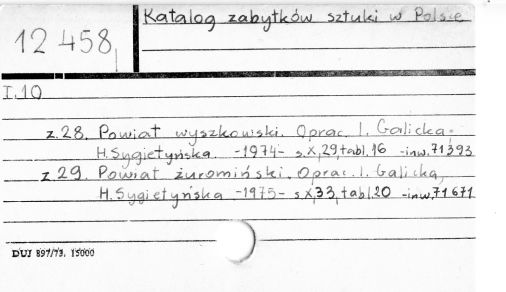 12 458
Katalog zabytków sztuki w Polsce
I.10
z.28. Powiat wyszkowski. Oprac. I. Galicka,
H. Sygietyńska. -1974- s.X,29,tabl.16 -inw.71393
z.29. Powiat żuromiński. Oprac. I. Galicka,
H. Sygietyńska -1975- s.X,33,tabl.20 -inw.71671
DUJ 897/73. 15000